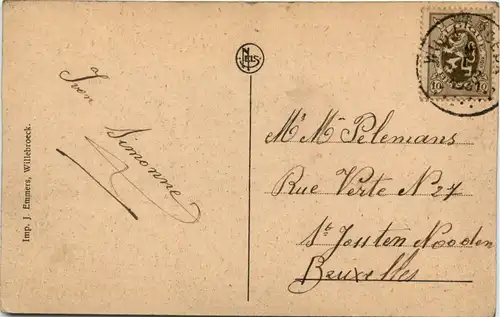 Imp. J. Emmers, Willebroeck.
Yvon
Simonne
NELS
10 10
Mr Me Pelemans
Rue Verte No 27
St Josten Nooden
Bruxelles